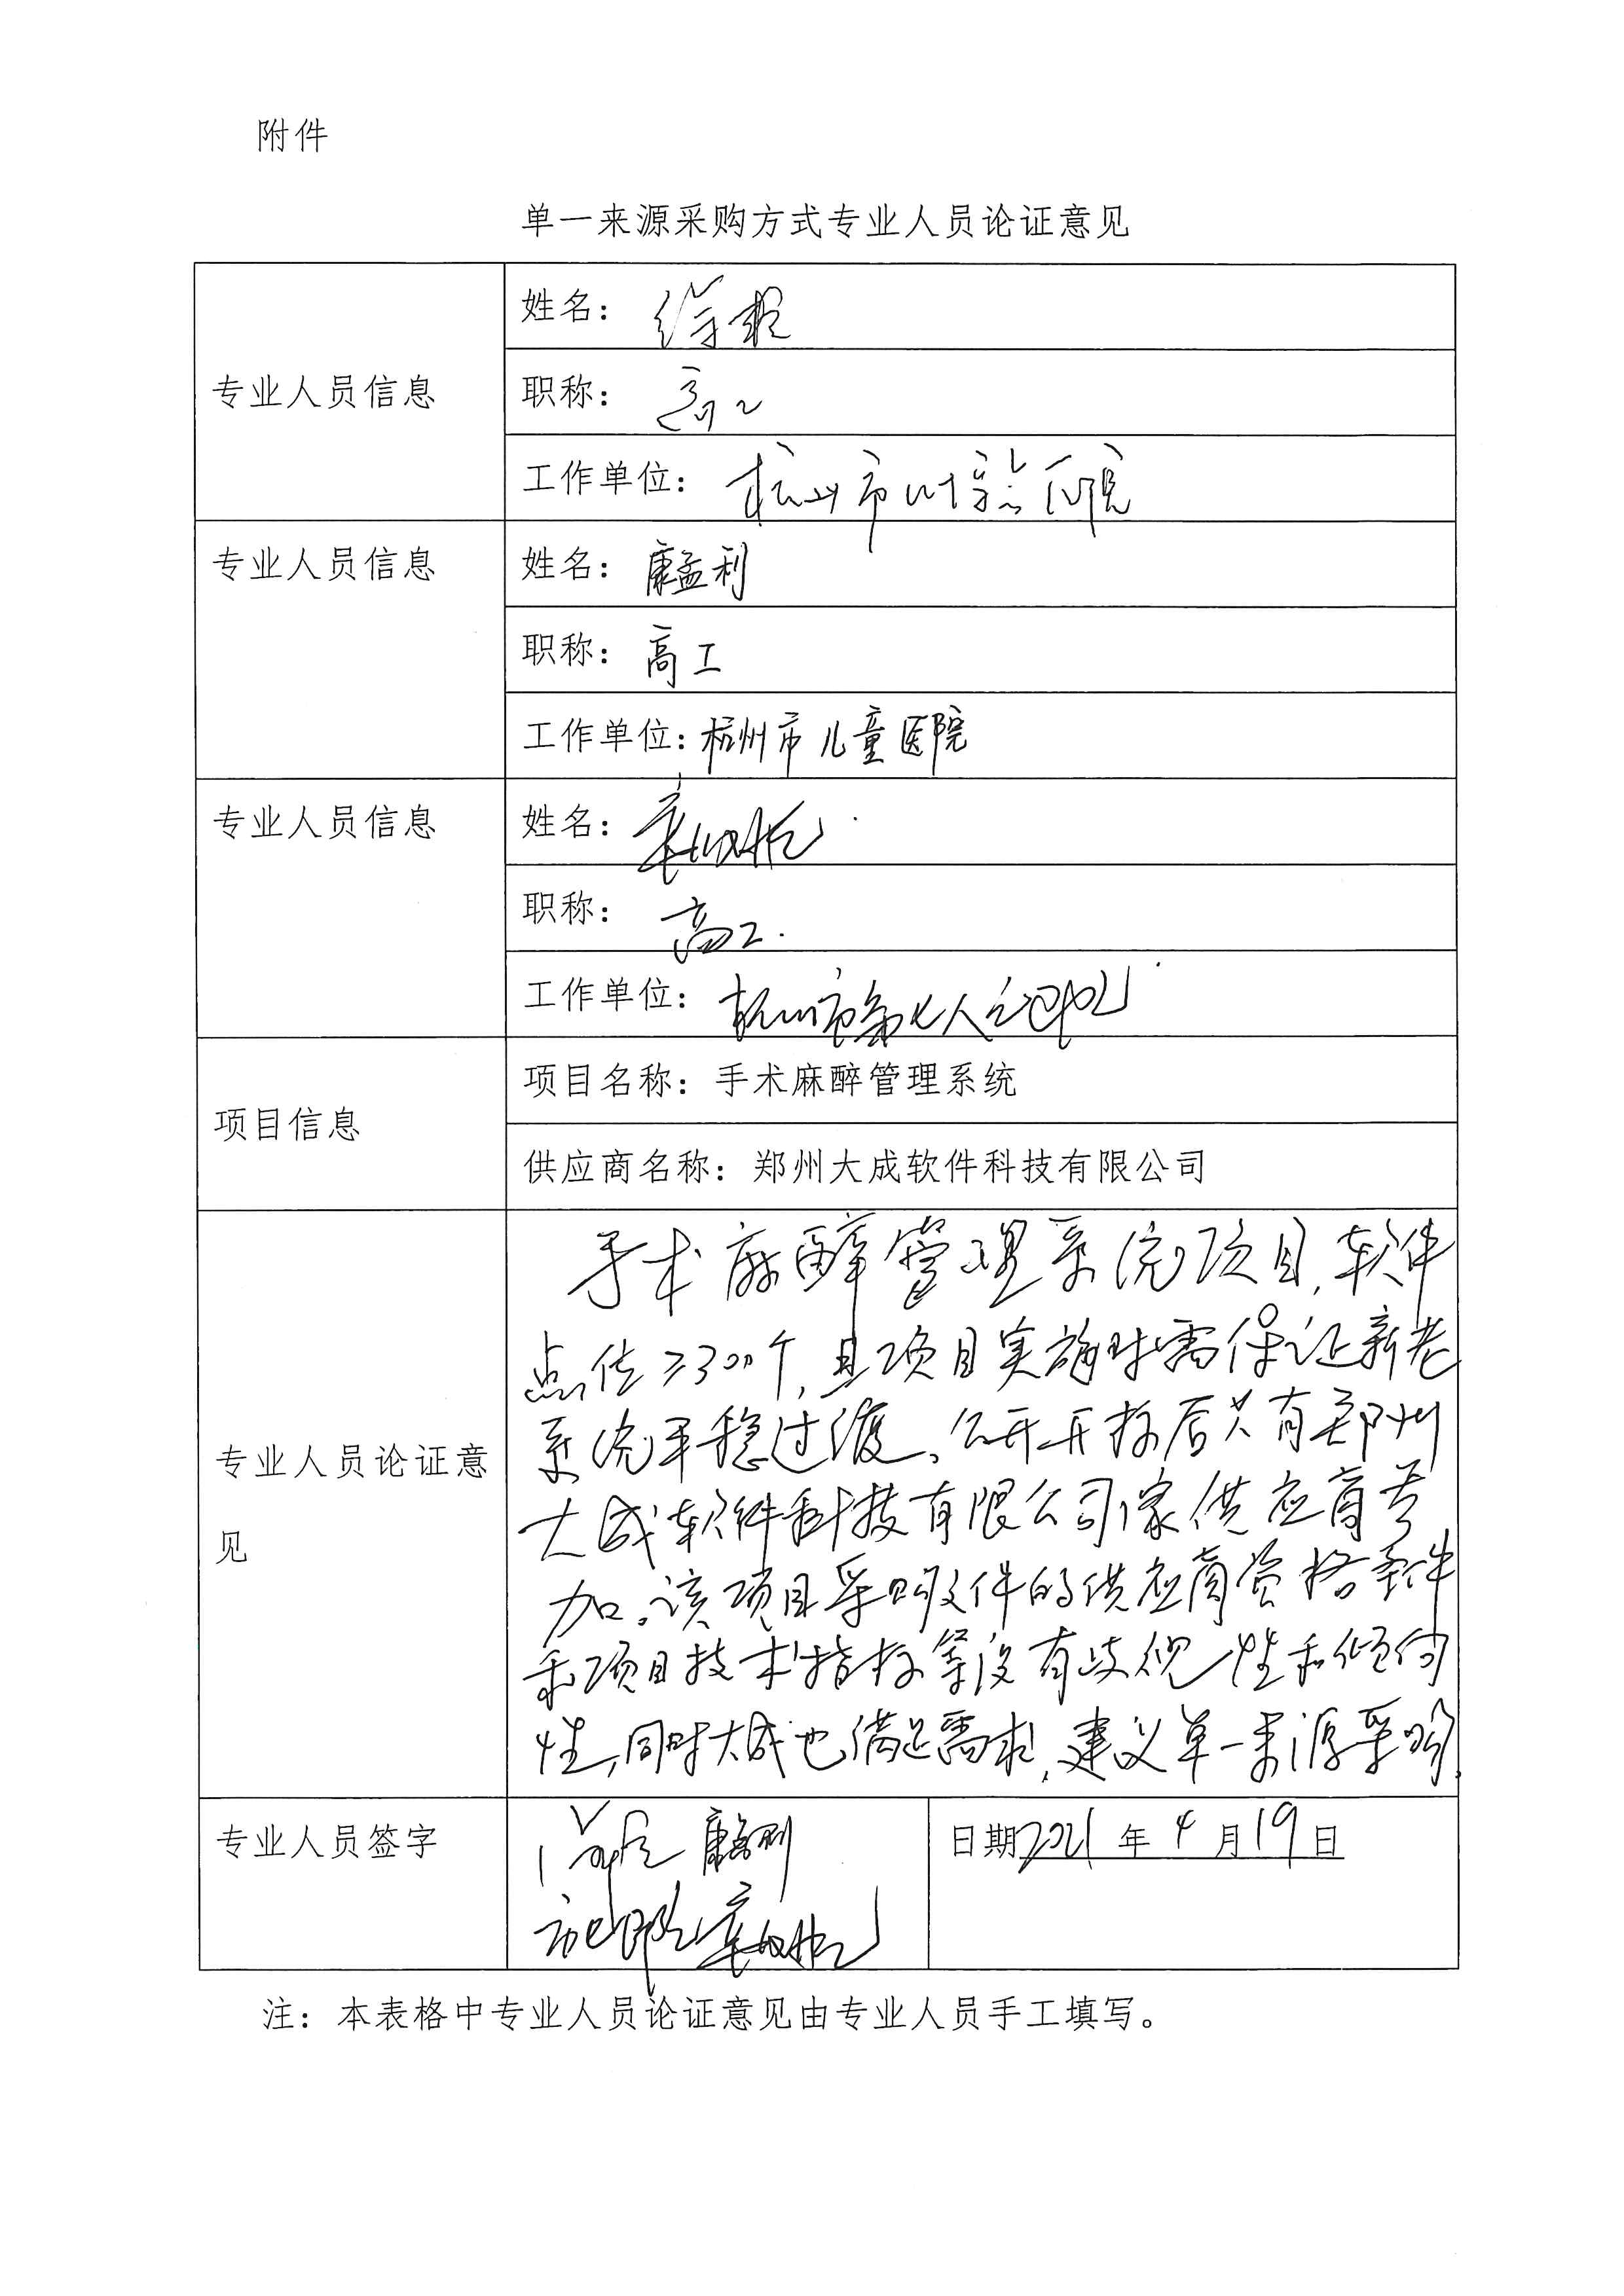 附件
单一来源采购方式专业人员论证意见
专业人员信息
姓名：
职称：高工
工作单位：杭州市 医院
专业人员信息
姓名：康孟利
职称：高工
工作单位：杭州市儿童医院
专业人员信息
姓名：
职称：高工.
工作单位：杭州市第七人民医院
项目信息
项目名称：手术麻醉管理系统
供应商名称：郑州大成软件科技有限公司
专业人员论证意
见
手术麻醉管理系统项目，软件
点位≥300个，且项目实施时需保证新老
系统平稳过渡。公开开标后只有郑州
大成软件科技有限公司家供应商参
加。该项目采购文件的供应商资格条件
和项目技术指标等没有歧视性和倾向
性，同时大成也满足需求，建议单一来源采购。
专业人员签字
康孟利
日期2021年4月19日
注：本表格中专业人员论证意见由专业人员手工填写。